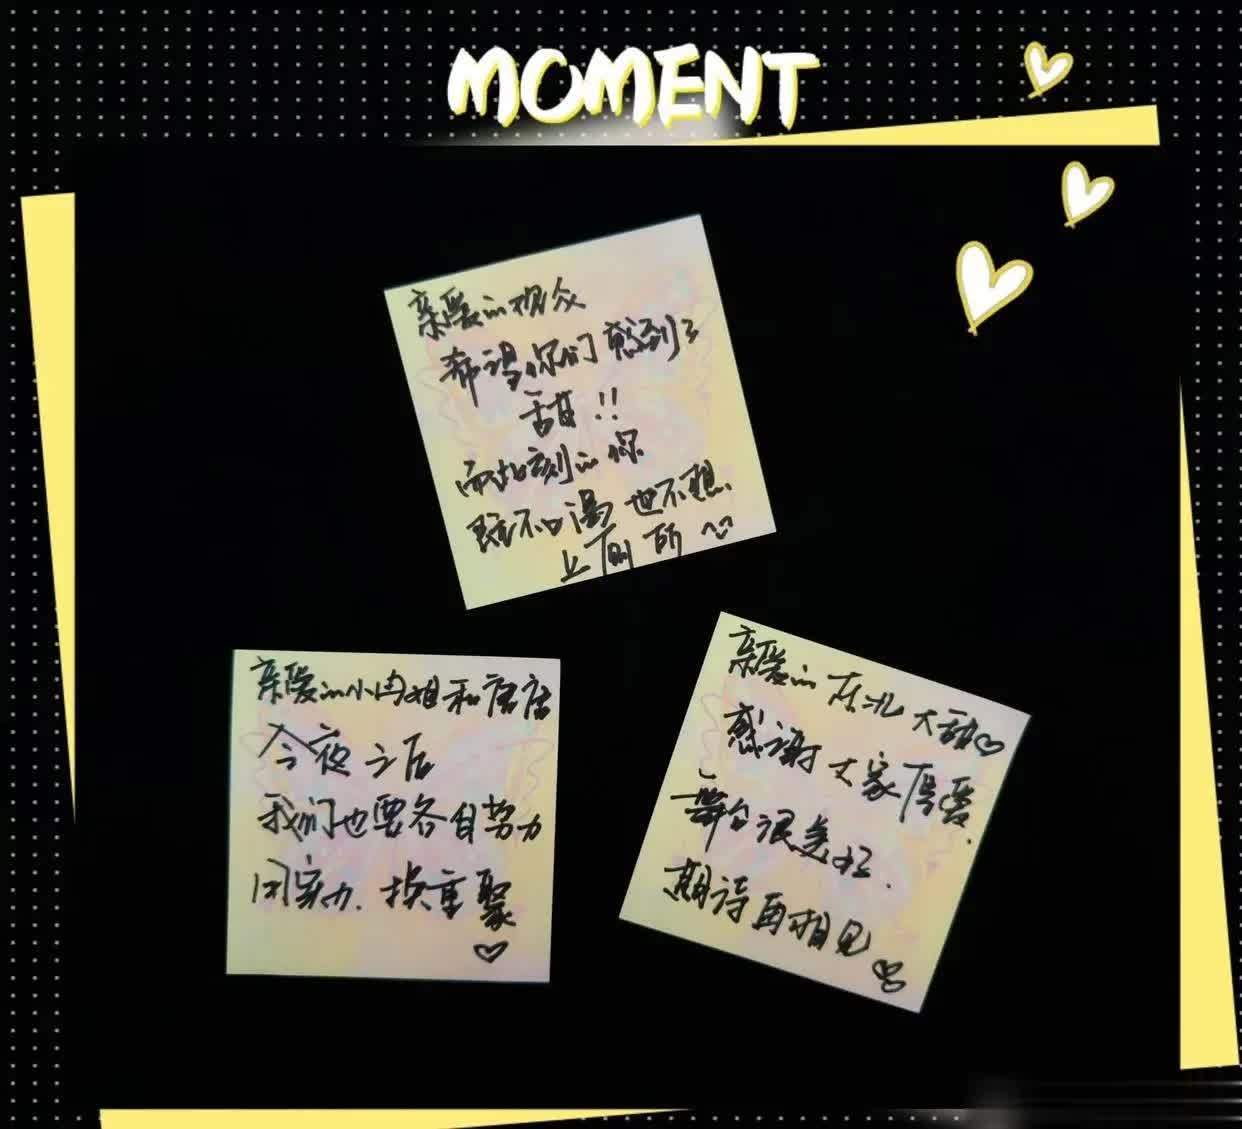 MOMENT
亲爱的观众
希望你们感到了
甜!!
而此刻的你
既不口渴 也不想
上厕所
亲爱的小肉姐和唐唐
今夜之后
我们也要各自努力
用实力.换重聚
亲爱的东北大甜
感谢大家厚爱.
舞台很急短.
期待再相见